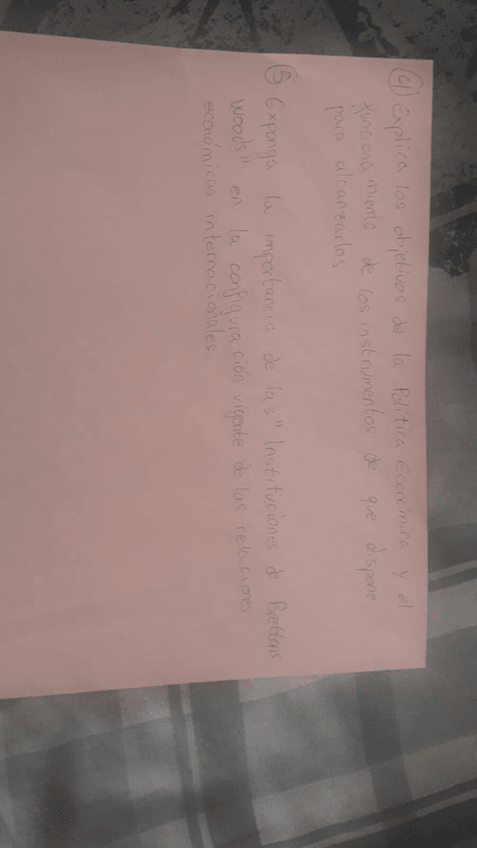 ④ Explica los objetivos de la Política Económica y el
funcionamiento de los instrumentos de que dispone
para alcanzarlos
⑤ Exponga la importancia de las "Instituciones de Brettons
Woods" en la configuración vigente de las relaciones
económicas internacionales